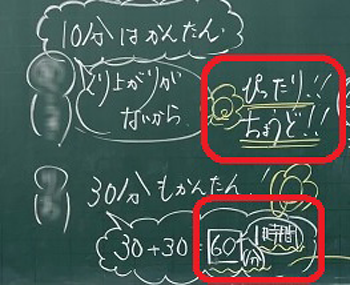 10分はかんたん
くり上がりが
ないから
ぴったり!!
ちょうど!!
30分もかんたん!
30+30=60分
時間